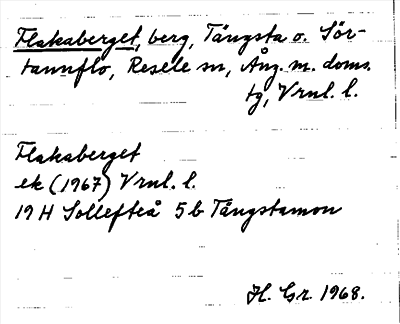 Flakaberget, berg, Tängsta o. Sör-
tannflo, Resele sn, Ång. m. doms.
tg, Vrnl. l.
Flakaberget
ek (1967) Vrnl. l.
19 H Sollefteå 5 b Tängstamon
H. Gr. 1968.